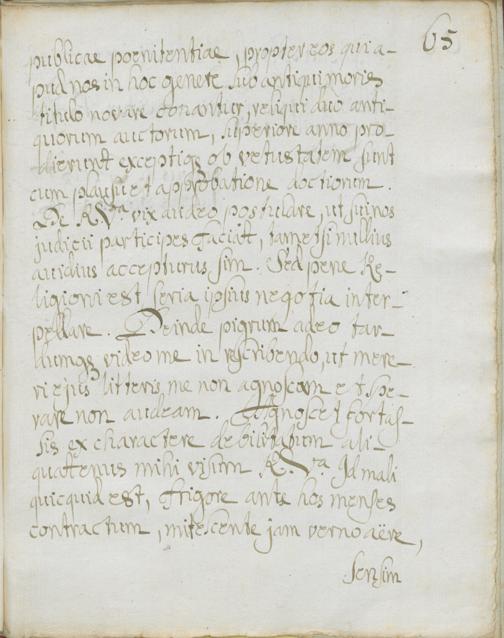 65
publicae poenitentiae, propter eos qui a-
pud nos in hoc genere sub antiqui moris
titulo novare conantur, reliqui duo anti-
quorum auctorum, superiore anno pro-
dierunt exceptiq; ob vetustatem sunt
cum plausu et approbatione doctiorum.
De R.Vra vix audeo postulare, ut sui nos
judicii participes faciat, tametsi nullius
avidius accepturus sim. Sed pene Re-
ligioni est, seria ipsius negotia inter-
pellare. Deinde pigrum adeo tar-
dumq; video me in rescribendo, ut mere-
ri ejus litteris me non agnoscam et spe-
rare non audeam. Agnoscet fortas-
sis ex charactere debilitatum ali-
quattenus mihi visum R.Vra Id mali
quicquid est, frigore ante hos menses
contractum, mitescente jam verno aëre,
sensim